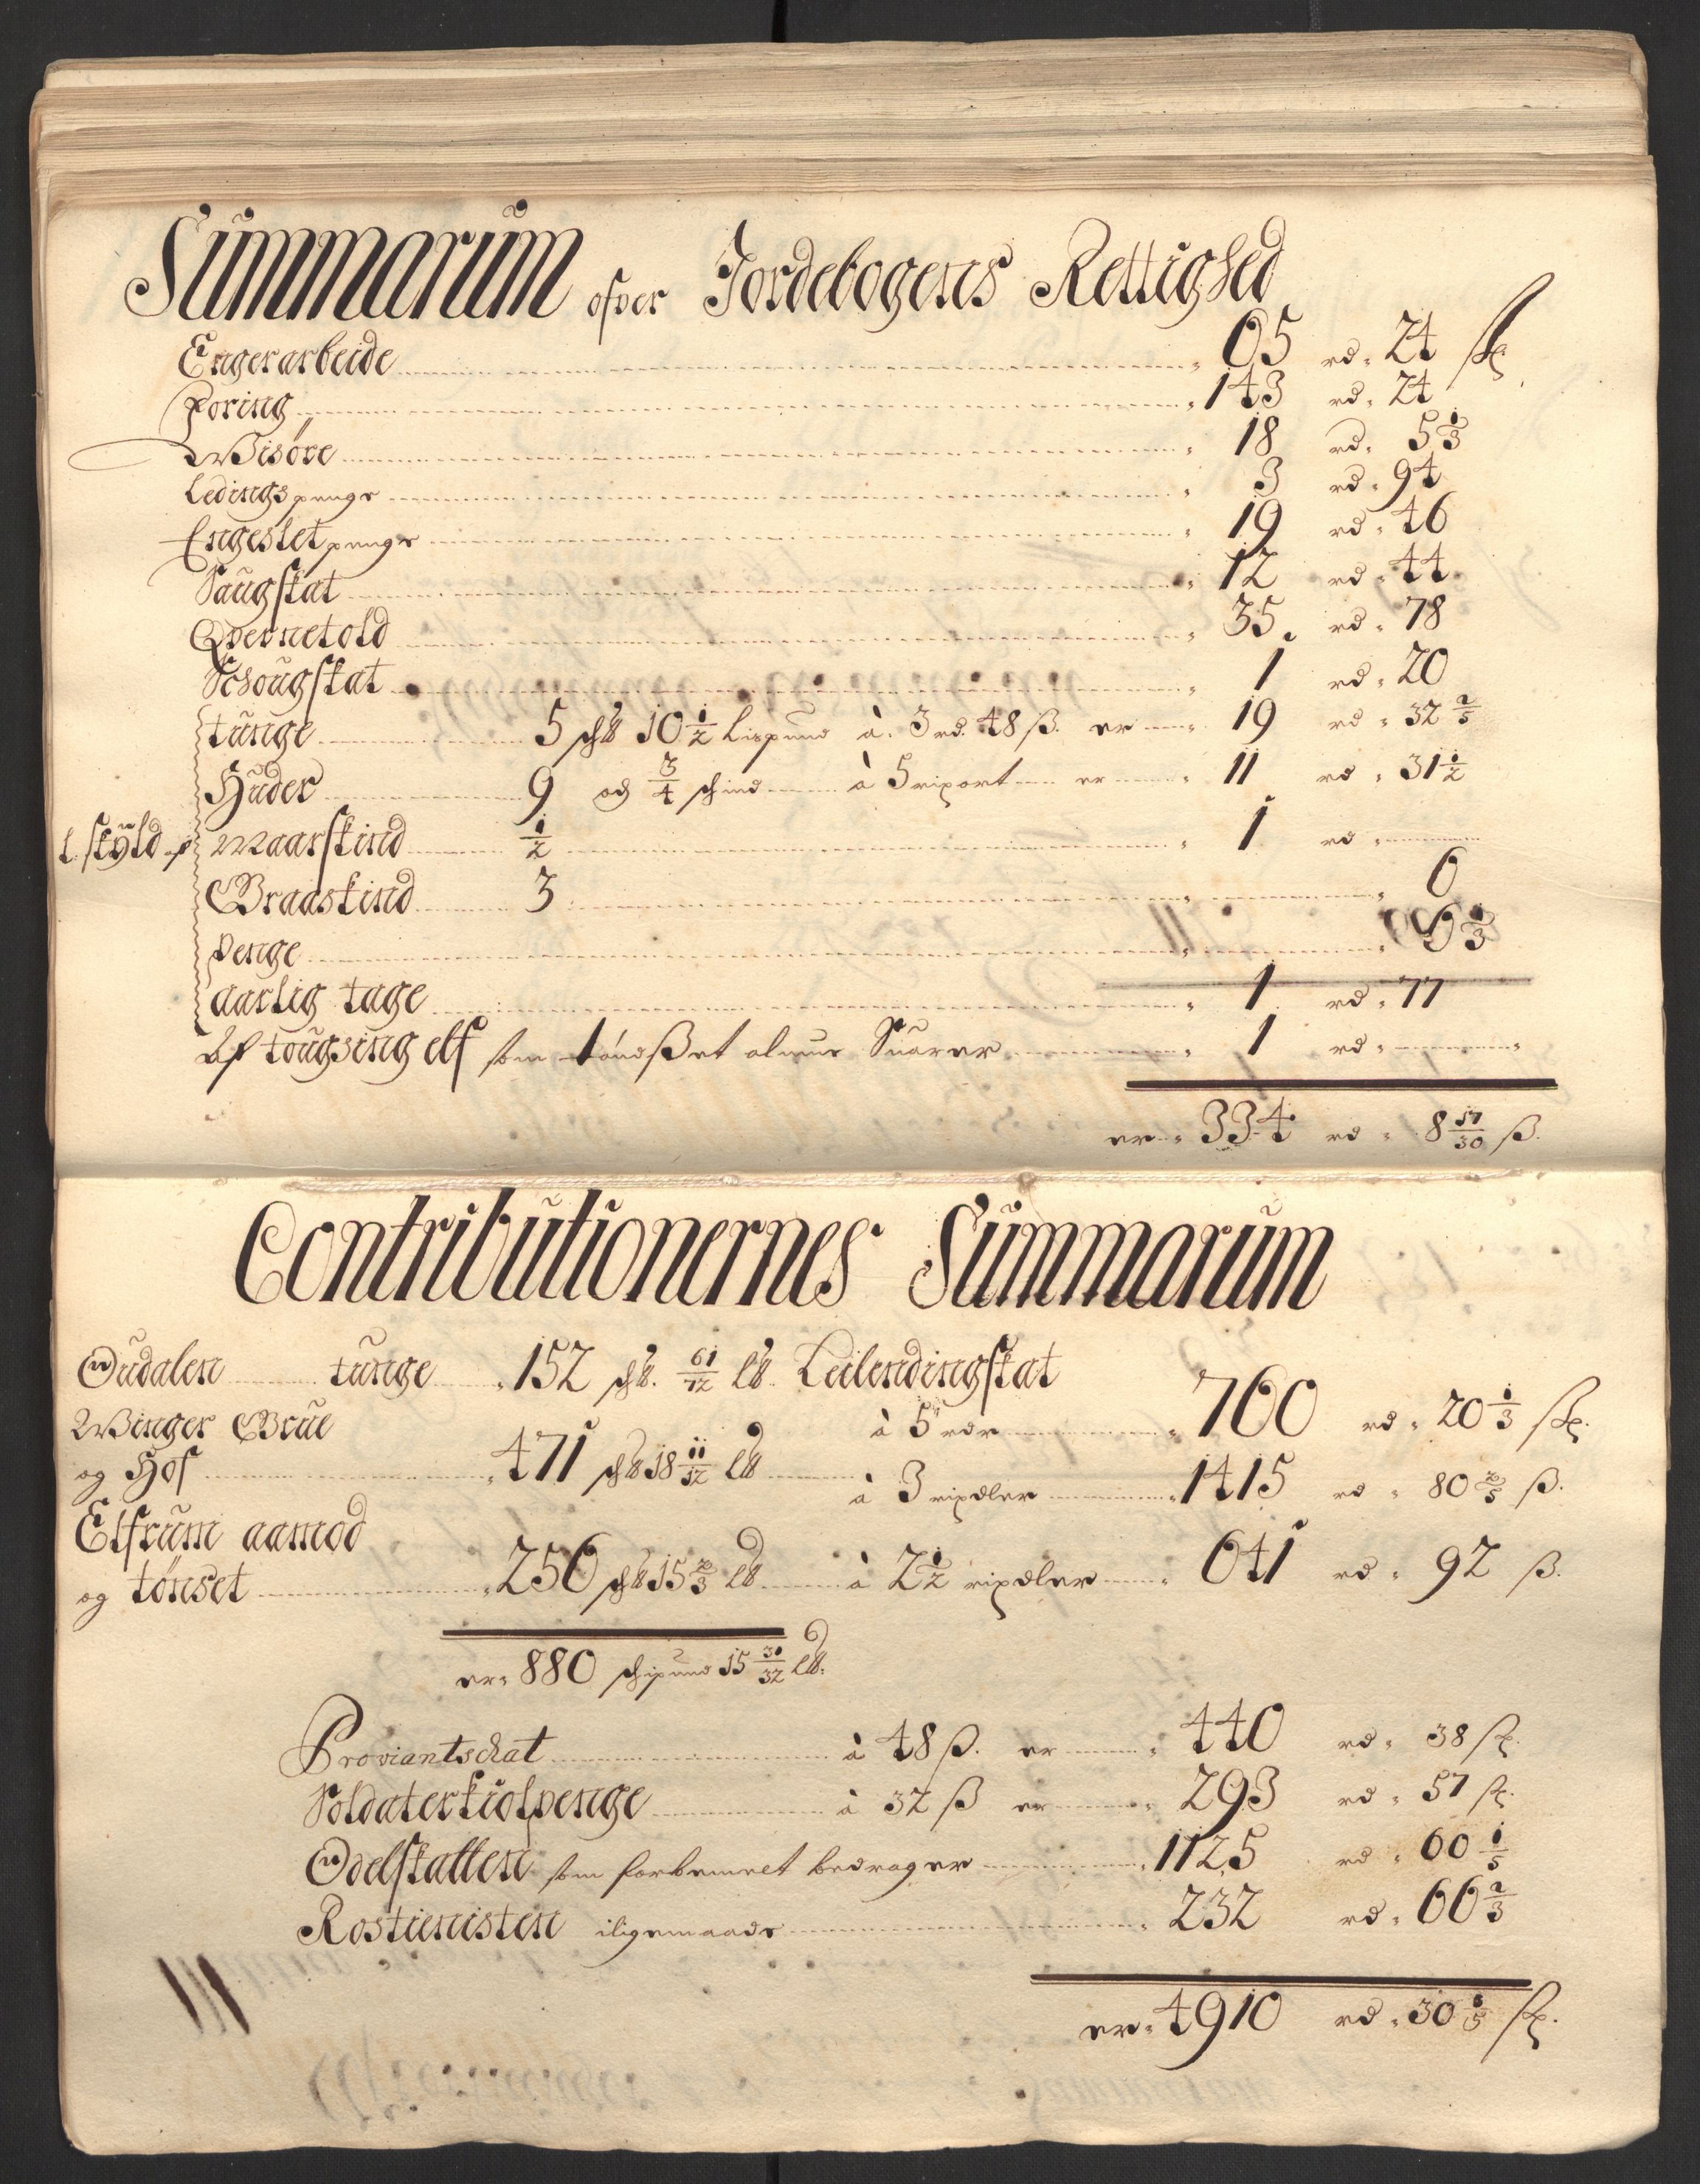 Summarum ofver Jordebogens Rettighed
Engerarbeide 65 rd. 24 ß
Foring 143 rd. 24
Wisöre 18 rd. 5 1/3
Ledings penge 3 rd. 94
Engeslet penge 19 rd. 46
Saugskat 12 rd. 44
Qvernetold 35 rd. 78
Schougskat 1 rd. 20
tunge 5 sch℔ 10 1/2 Lispund à 3 rd. 48 ß. er 19 rd. 32 2/5
Huder 9 og 3/4 schind à 5 rixort er 11 rd. 31 1/2
L. skyld Maarskind 1/2 1 rd.
Graaskind 3 6
penge 9 1/3
aarlig tage 1 rd. 77
Af tougsing elf som töndßet almue Suarer 1 rd.
er 334 rd. 8 17/30 ß.
Contributionernes Summarum
Oudalen tunge 152 sch℔. 61/72 L℔. Leilendingskat
à 5 rdr 760 rd. 20 1/3 ß.
Winger Grue
og Hof 471 sch℔ 18 11/12 L℔
à 3 rixdler 1415 rd. 80 2/5 ß.
Elfrum aamod
og tönset 256 sch℔ 15 2/3 L℔ à 2 1/2 rixdler 641 rd. 92 ß.
er 880 schipund 15 31/32 L℔.
Proviantschat à 48 ß. er 440 rd. 38 ß.
Soldaterkiolpenge à 32 ß er 293 rd. 57 ß.
Odelskatten som forbemelt bedrager 1125 rd. 60 1/5
Rostienisten iligemaade 232 rd. 66 2/3
er 4910 rd. 30 3/5 ß.